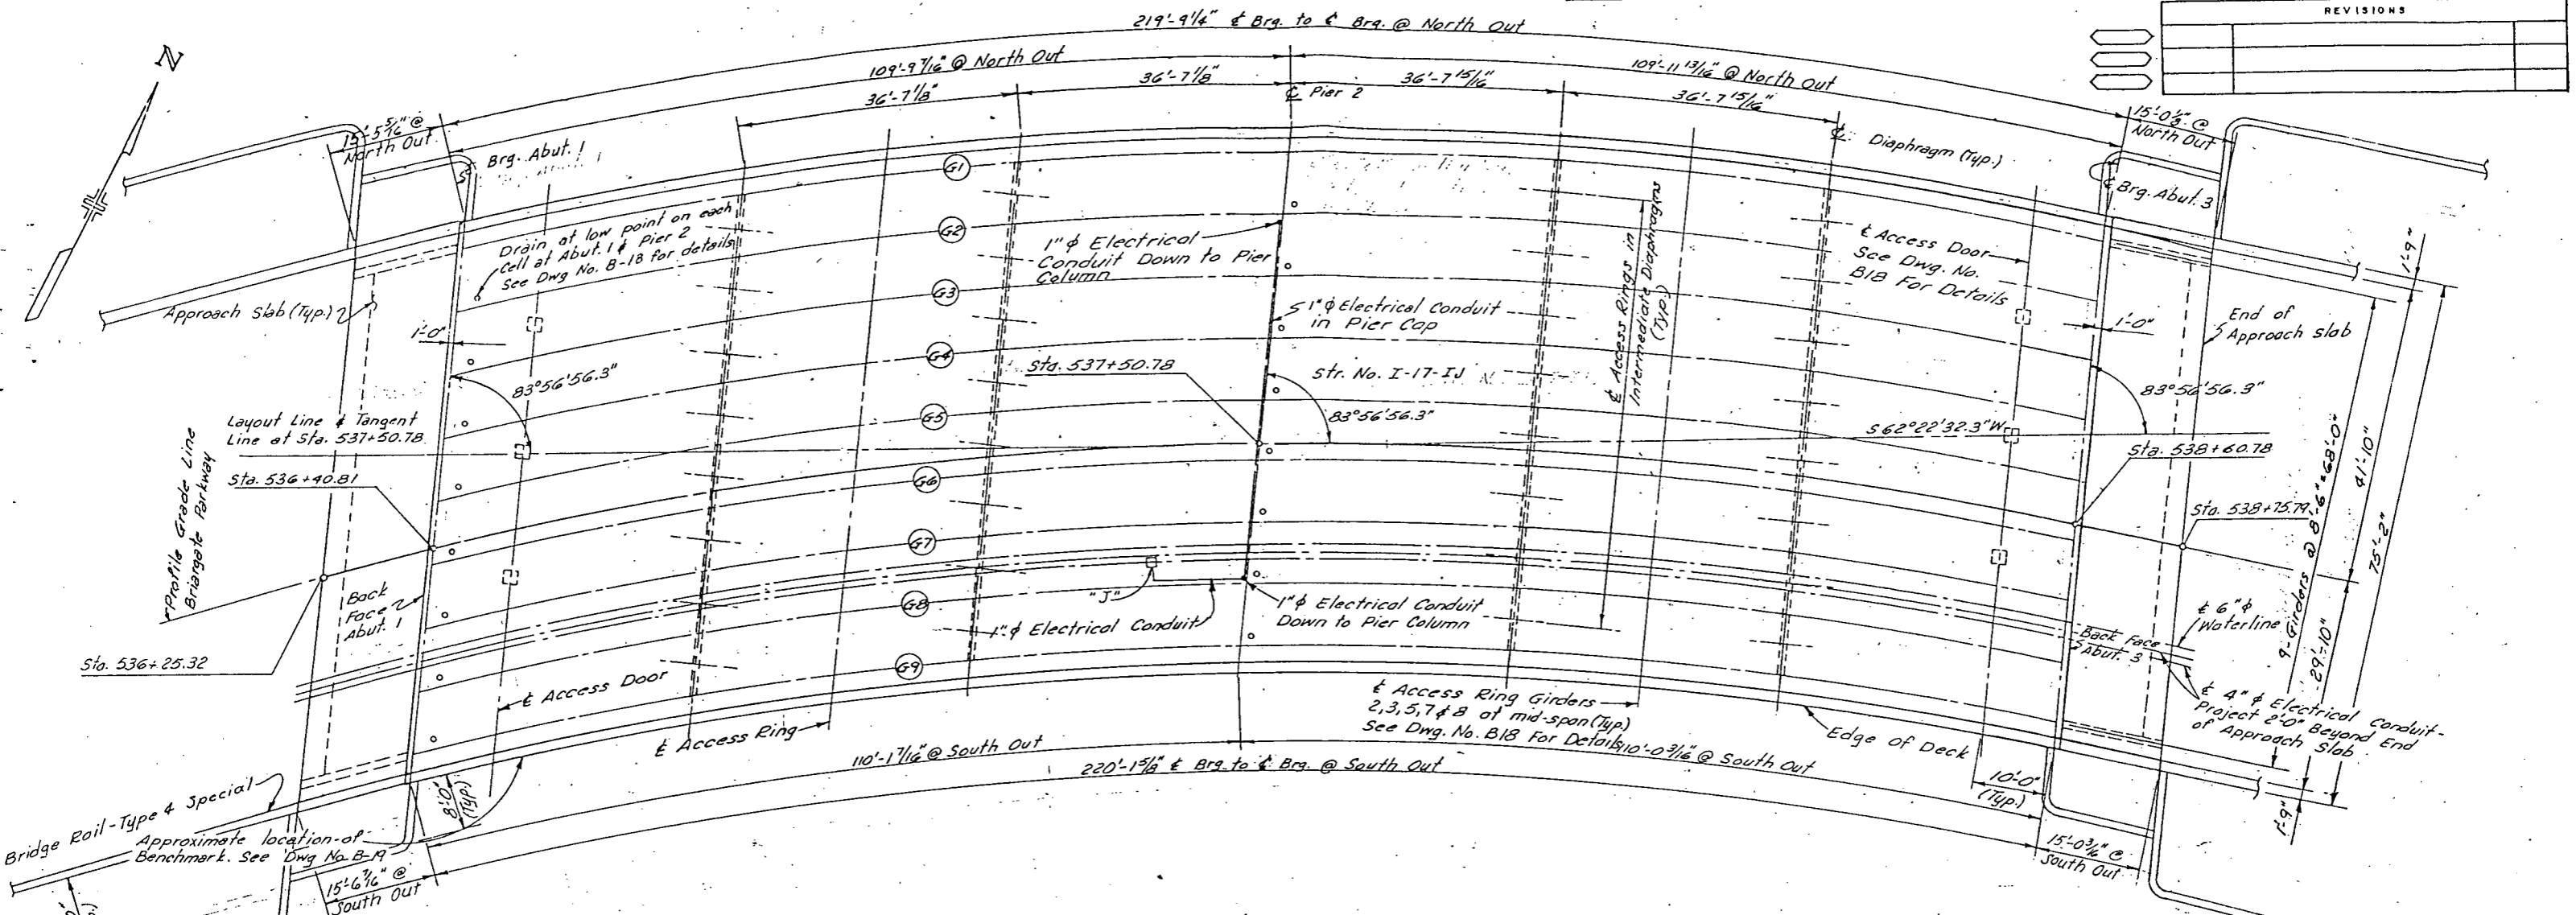 REVISIONS
219'-9 1/4" ℄ Brg. to ℄ Brg. @ North Out
109'-9 7/16" @ North Out
109'-11 13/16" @ North Out
36'-7 1/8"
36'-7 1/8"
36'-7 15/16"
36'-7 15/16"
℄ Pier 2
N
15'-5 5/16" @
North Out
Brg. Abut. 1
℄ Diaphragm (Typ.)
15'-0 1/8" @
North Out
℄ Brg. Abut. 3
G1
G2
G3
G4
G5
G6
G7
G8
G9
Drain at low point on each
Cell at Abut. 1 & Pier 2
See Dwg No. B-18 for details
1" ϕ Electrical
Conduit Down to Pier
Column
1" ϕ Electrical Conduit
in Pier Cap
℄ Access Rings in
Intermediate Diaphragms
(Typ.)
℄ Access Door
See Dwg. No.
B18 For Details
1'-9"
Approach Slab (Typ.)
1'-0"
1'-0"
End of
Approach slab
83°56'56.3"
Sta. 537+50.78
Str. No. I-17-IJ
83°56'56.3"
83°56'56.3"
Layout Line & Tangent
Line at Sta. 537+50.78
S 62°22'32.3" W
Sta. 538+60.78
Sta. 536+40.81
Profile Grade Line
Briargate Parkway
Sta. 538+75.79
9-Girders @ 8'-6" = 68'-0"
41'-10"
75'-2"
29'-10"
Back
Face
Abut. 1
"J"
1" ϕ Electrical Conduit
1" ϕ Electrical Conduit
Down to Pier Column
℄ 6" ϕ
Waterline
Back Face
Abut. 3
Sta. 536+25.32
℄ Access Door
℄ Access Ring
℄ Access Ring Girders
2,3,5,7 & 8 at mid-span (Typ.)
See Dwg. No. B18 For Details
℄ 4" ϕ Electrical Conduit-
Project 2'-0" Beyond End
of Approach Slab
Edge of Deck
110'-1 7/16" @ South Out
110'-0 3/16" @ South Out
220'-1 5/8" ℄ Brg. to ℄ Brg. @ South Out
10'-0"
(Typ.)
1'-9"
Bridge Rail-Type 4 Special
8'-0"
(Typ.)
Approximate location of
Benchmark. See Dwg No. B-19
15'-6 7/16" @
South Out
15'-0 3/16" @
South Out